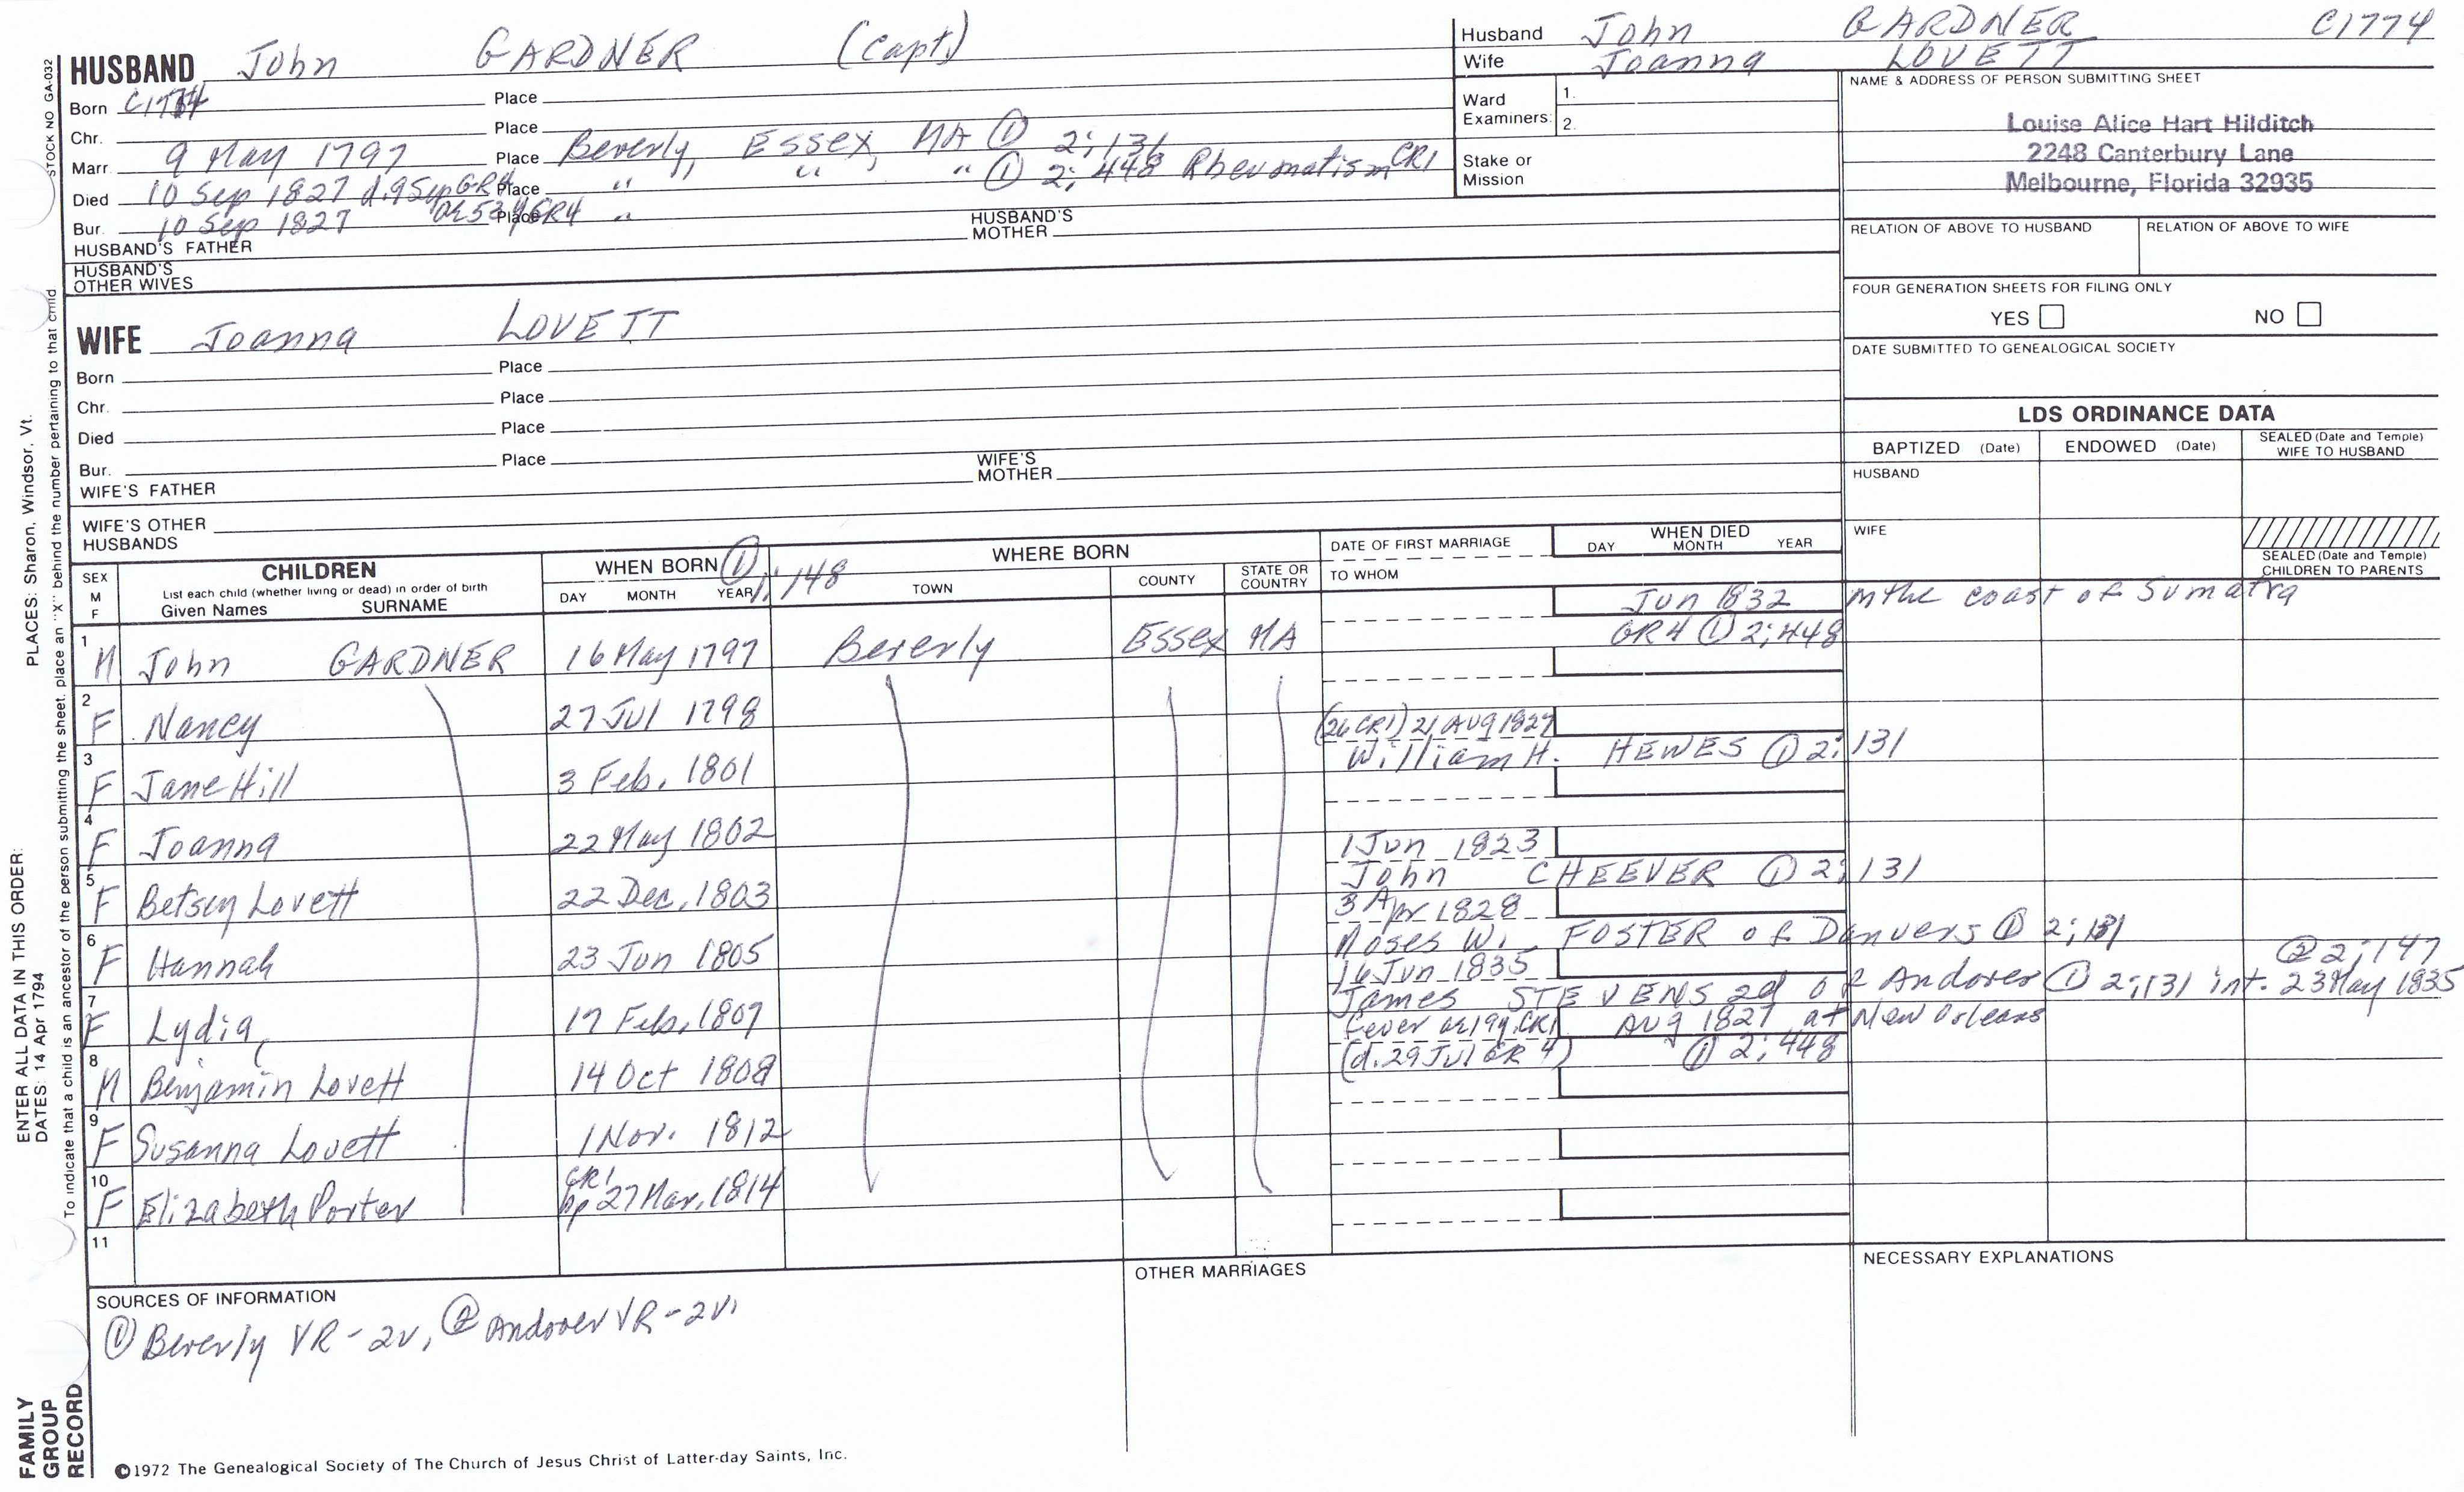 HUSBAND John GARDNER (Capt)
Born C1774 Place
Chr. Place
Marr. 9 May 1797 Place Beverly, Essex, MA ① 2:131
Died 10 Sep 1827 d. 9 Sep GR4 Place " " " ① 2:448 Rheumatism CR1
Bur. 10 Sep 1827 ae 53y GR4 Place "
HUSBAND'S FATHER HUSBAND'S MOTHER
HUSBAND'S OTHER WIVES
Husband John GARDNER C1774
Wife Joanna LOVETT
Ward Examiners: 1. 2.
Stake or Mission
NAME & ADDRESS OF PERSON SUBMITTING SHEET
Louise Alice Hart Hilditch
2248 Canterbury Lane
Melbourne, Florida 32935
RELATION OF ABOVE TO HUSBAND RELATION OF ABOVE TO WIFE
FOUR GENERATION SHEETS FOR FILING ONLY
YES NO
DATE SUBMITTED TO GENEALOGICAL SOCIETY
WIFE Joanna LOVETT
Born Place
Chr. Place
Died Place
Bur. Place
WIFE'S FATHER WIFE'S MOTHER
WIFE'S OTHER HUSBANDS
LDS ORDINANCE DATA
BAPTIZED (Date) ENDOWED (Date) SEALED (Date and Temple) WIFE TO HUSBAND
HUSBAND
WIFE
SEALED (Date and Temple) CHILDREN TO PARENTS
SEX M F
CHILDREN
List each child (whether living or dead) in order of birth
Given Names SURNAME
WHEN BORN ① 1:148
DAY MONTH YEAR
WHERE BORN
TOWN COUNTY STATE OR COUNTRY
DATE OF FIRST MARRIAGE
TO WHOM
WHEN DIED
DAY MONTH YEAR
1 M John GARDNER 16 May 1797 Beverly Essex MA Jun 1832 on the coast of Sumatra
GR4 ① 2:448
2 F Nancy 27 Jul 1798
3 F Jane Hill 3 Feb. 1801 (26 CR1) 21 AUG 1827
William H. HEWES ① 2:131
4 F Joanna 22 May 1802
5 F Betsey Lovett 22 Dec. 1803 1 Jun 1823
John CHEEVER ① 2:131
6 F Hannah 23 Jun 1805 3 Apr 1828
Moses W. FOSTER of Danvers ① 2:131
7 F Lydia 17 Feb. 1807 16 Jun 1835 ② 2:147
James STEVENS 2d of Andover ① 2:131 int. 23 May 1835
8 M Benjamin Lovett 14 Oct 1808 fever ae 19y. CR1 AUG 1827 at New Orleans
(d. 29 Jul GR 4) ① 2:448
9 F Susanna Lovett 1 Nov. 1812
10 F Elizabeth Porter CR1 bp 27 Mar. 1814
11
SOURCES OF INFORMATION
① Beverly VR-2v, ② Andover VR-2v.
OTHER MARRIAGES
NECESSARY EXPLANATIONS
©1972 The Genealogical Society of The Church of Jesus Christ of Latter-day Saints, Inc.
STOCK NO GA-032
To indicate that a child is an ancestor of the person submitting the sheet, place an "X" behind the number pertaining to that child
ENTER ALL DATA IN THIS ORDER: PLACES: Sharon, Windsor, Vt.
DATES: 14 Apr 1794
FAMILY GROUP RECORD